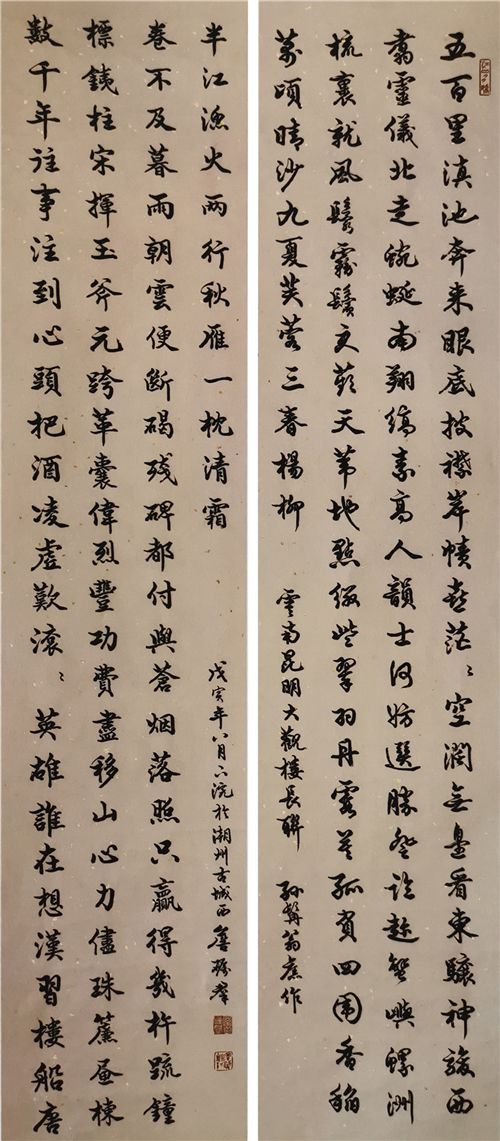 五百里滇池奔来眼底披襟岸幘喜茫〻空濶无邊看東驤神駿西
翥靈儀北走蜿蜒南翔縞素高人韻士何妨選勝登臨趁蟹嶼螺洲
梳裹就風鬟霧鬢更蘋天葦地點綴些翠羽丹霞莫孤負四圍香稻
萬頃晴沙九夏芙蓉三春楊柳
雲南昆明大觀樓長聯 孫髯翁原作
數千年往事注到心頭把酒凌虛歎滾〻英雄誰在想漢習樓船唐
標鐵柱宋揮玉斧元跨革囊偉烈豐功費盡移山心力儘珠簾畫棟
卷不及暮雨朝雲便斷碣殘碑都付與蒼烟落照只贏得幾杵疏鐘
半江漁火兩行秋雁一枕清霜
戊寅年八月六浣於湖州古城西